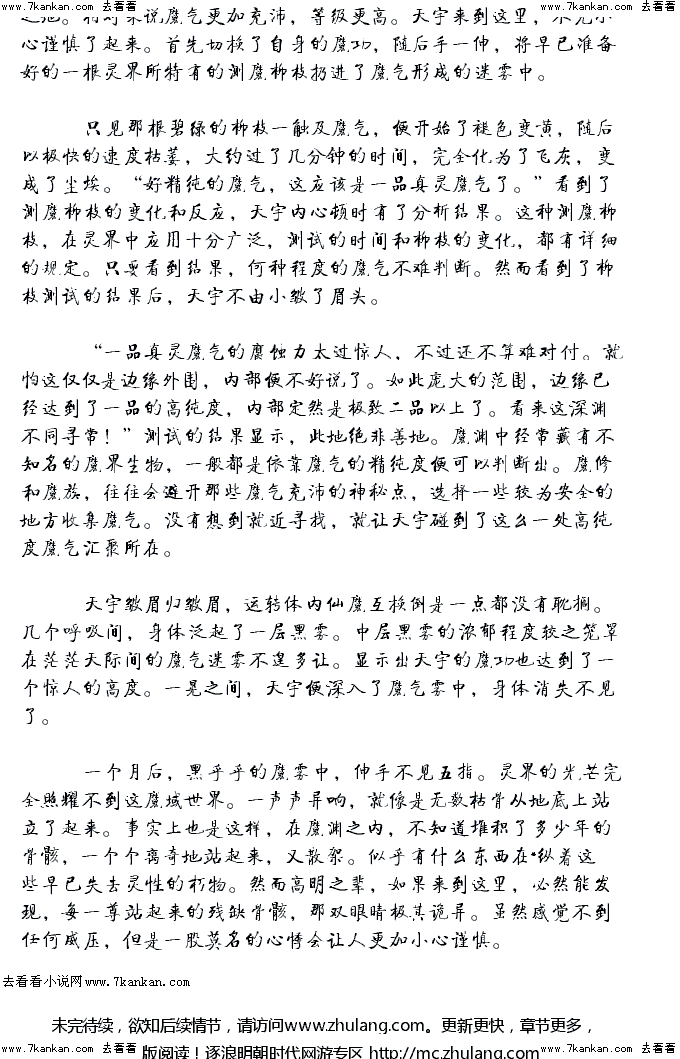 www.7kankan.com 去看看 www.7kankan.com 去看看 www.7kankan.com 去看看 www.7kankan.com 去看看 www.7kankan.com 去看看
之地。相对来说魔气更加充沛，等级更高。天宇来到这里，不免小
心谨慎了起来。首先切换了自身的魔功，随后手一伸，将早已准备
好的一根灵界所特有的测魔柳枝扔进了魔气形成的迷雾中。
只见那根碧绿的柳枝一触及魔气，便开始了褪色变黄，随后
以极快的速度枯萎，大约过了几分钟的时间，完全化为了飞灰，变
成了尘埃。“好精纯的魔气，这应该是一品真灵魔气了。”看到了
测魔柳枝的变化和反应，天宇内心顿时有了分析结果。这种测魔柳
枝，在灵界中应用十分广泛，测试的时间和柳枝的变化，都有详细
的规定。只要看到结果，何种程度的魔气不难判断。然而看到了柳
枝测试的结果后，天宇不由小皱了眉头。
“一品真灵魔气的腐蚀力太过惊人，不过还不算难对付。就
怕这仅仅是边缘外围，内部便不好说了。如此庞大的范围，边缘已
经达到了一品的高纯度，内部定然是极致二品以上了。看来这深渊
不同寻常！”测试的结果显示，此地绝非善地。魔渊中经常藏有不
知名的魔界生物，一般都是依靠魔气的精纯度便可以判断出。魔修
和魔族，往往会避开那些魔气充沛的神秘点，选择一些较为安全的
地方收集魔气。没有想到就近寻找，就让天宇碰到了这么一处高纯
度魔气汇聚所在。
天宇皱眉归皱眉，运转体内仙魔互换倒是一点都没有耽搁。
几个呼吸间，身体泛起了一层黑雾。中层黑雾的浓郁程度较之笼罩
在茫茫天际间的魔气迷雾不遑多让。显示出天宇的魔功也达到了一
个惊人的高度。一晃之间，天宇便深入了魔气雾中，身体消失不见
了。
一个月后，黑乎乎的魔雾中，伸手不见五指。灵界的光芒完
全照耀不到这魔域世界。一声声异响，就像是无数枯骨从地底上站
立了起来。事实上也是这样，在魔渊之内，不知道堆积了多少年的
骨骸，一个个离奇地站起来，又散架。似乎有什么东西在*纵着这
些早已失去灵性的朽物。然而高明之辈，如果来到这里，必然能发
现，每一尊站起来的残缺骨骸，那双眼睛极其诡异。虽然感觉不到
任何威压，但是一股莫名的心悸会让人更加小心谨慎。
去看看小说网www.7kankan.com
未完待续，欲知后续情节，请访问www.zhulang.com。更新更快，章节更多，
版阅读！逐浪明朝时代网游专区 http://mc.zhulang.com
www.7kankan.com 去看看 www.7kankan.com 去看看 www.7kankan.com 去看看 www.7kankan.com 去看看 www.7kankan.com 去看看